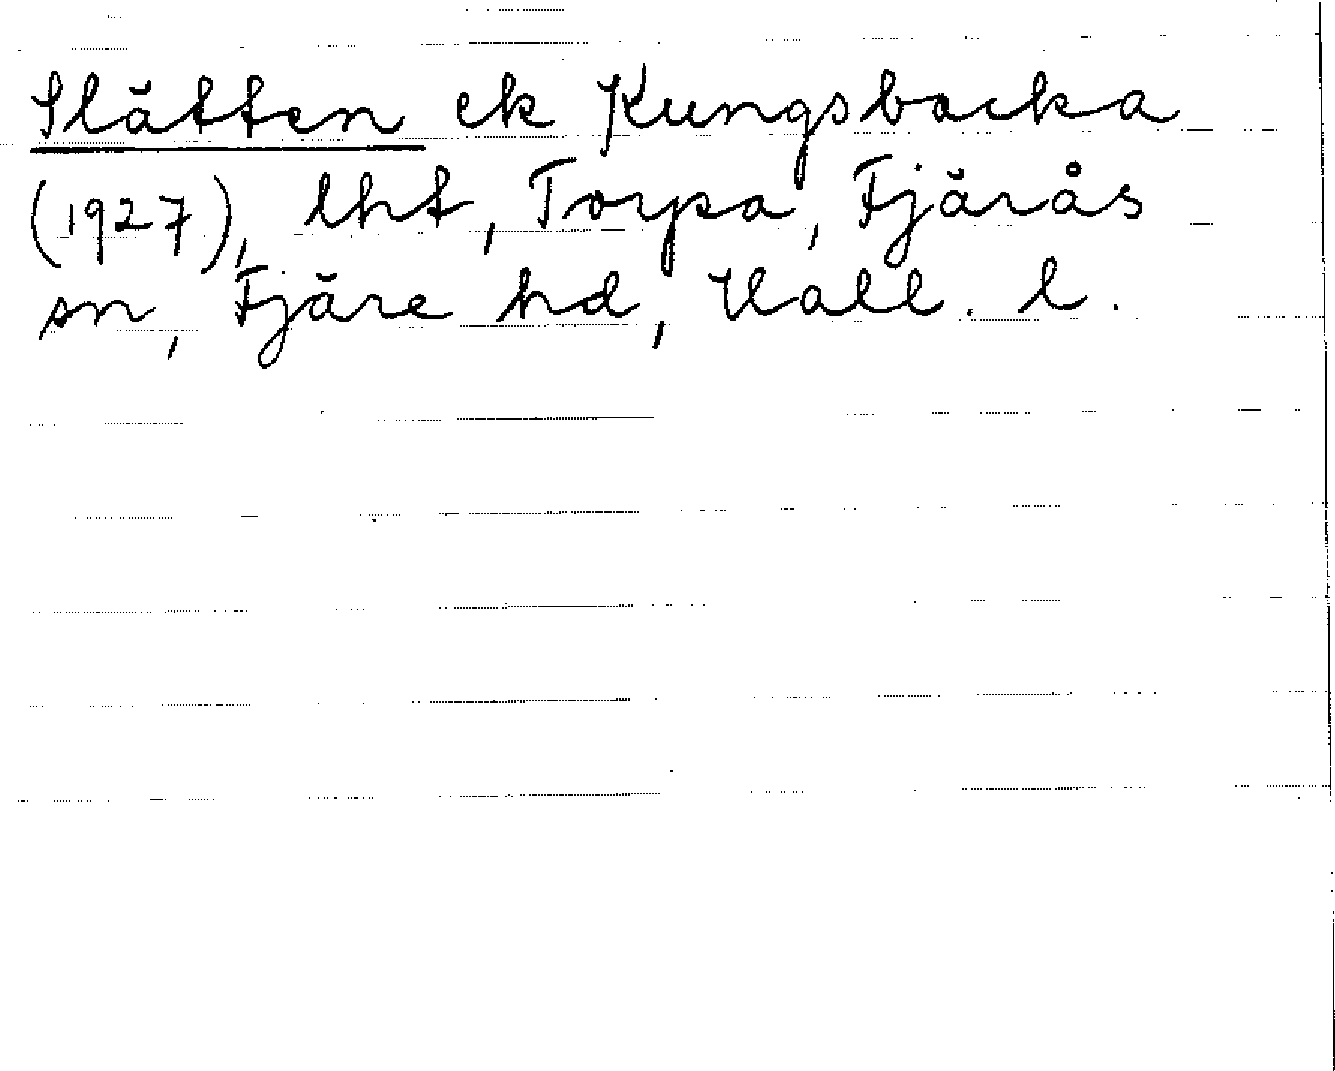 Slätten ek Kungsbacka
(1927), lht, Torpa, Fjärås
sn, Fjäre hd, Hall. l.